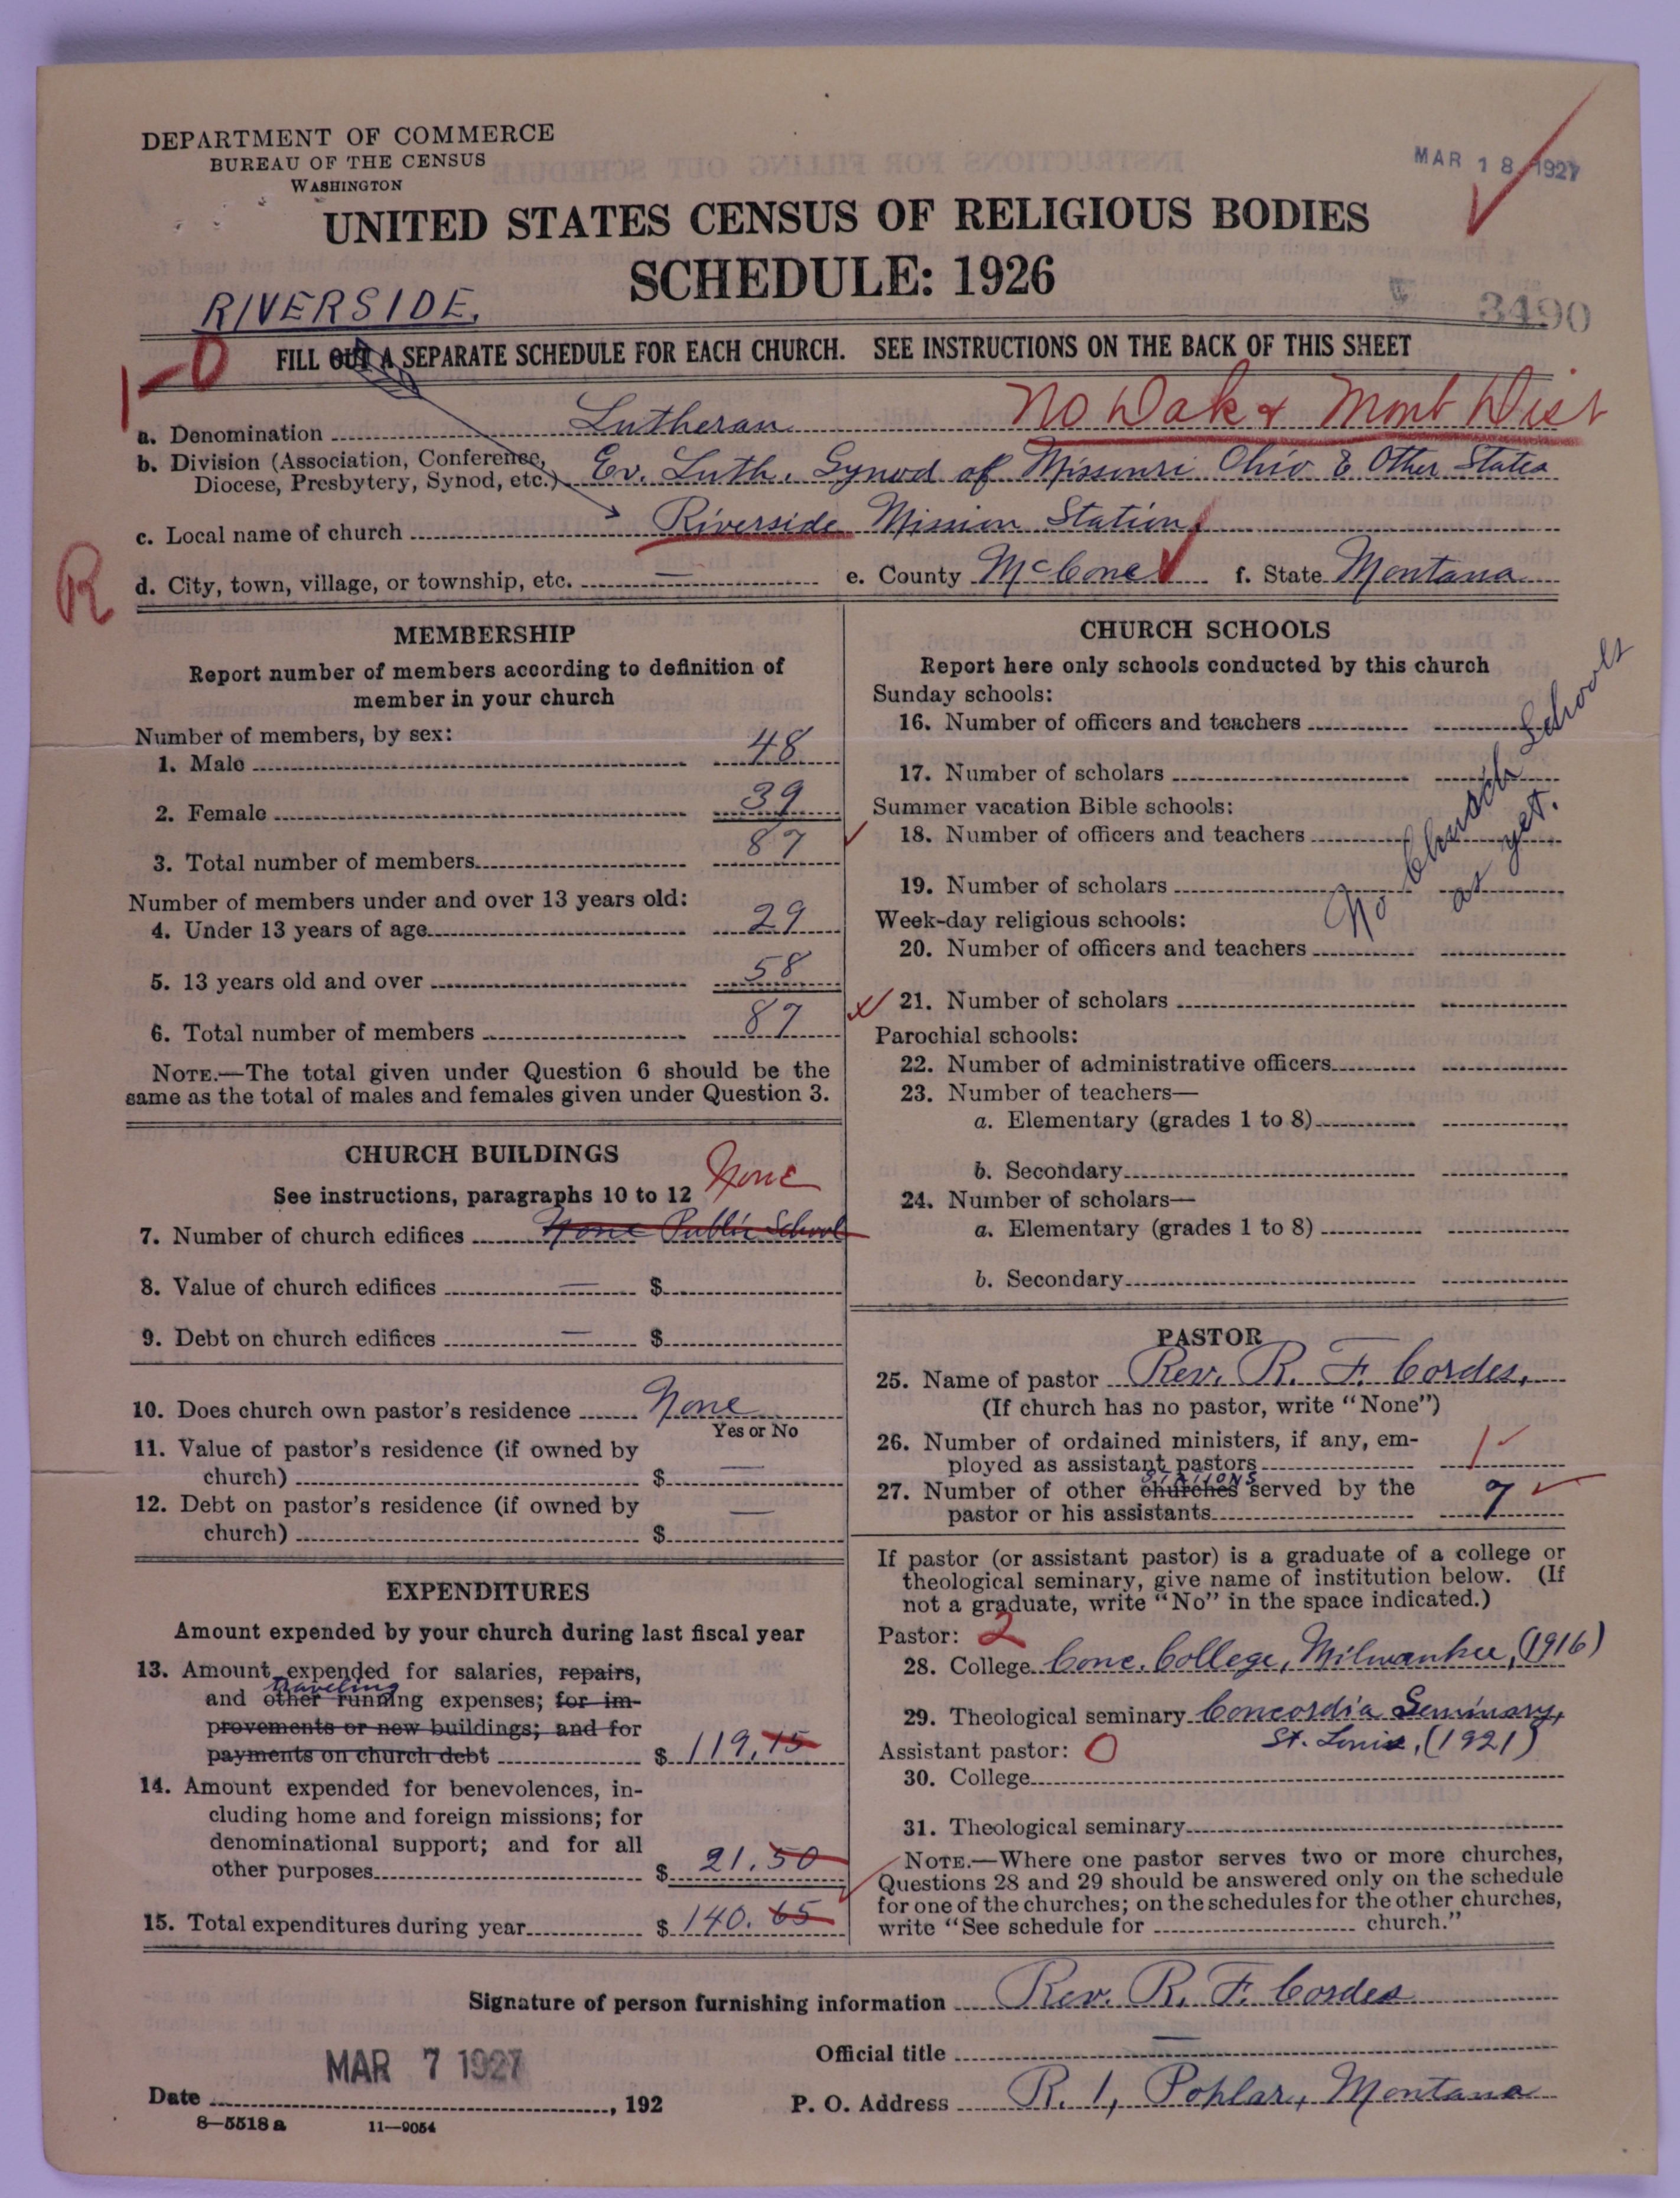 DEPARTMENT OF COMMERCE
BUREAU OF THE CENSUS
WASHINGTON
MAR 18 1927
UNITED STATES CENSUS OF RELIGIOUS BODIES
SCHEDULE: 1926
RIVERSIDE,
3490
FILL OUT A SEPARATE SCHEDULE FOR EACH CHURCH. SEE INSTRUCTIONS ON THE BACK OF THIS SHEET
1-0
No Dak & Mont Dist
a. Denomination Lutheran
b. Division (Association, Conference, Diocese, Presbytery, Synod, etc.) Ev. Luth. Synod of Missouri Ohio & Other States
c. Local name of church Riverside Mission Station
R
d. City, town, village, or township, etc. — e. County McCone f. State Montana
MEMBERSHIP
Report number of members according to definition of
member in your church
Number of members, by sex:
1. Male 48
2. Female 39
3. Total number of members 87
Number of members under and over 13 years old:
4. Under 13 years of age 29
5. 13 years old and over 58
6. Total number of members 87
NOTE.—The total given under Question 6 should be the
same as the total of males and females given under Question 3.
CHURCH BUILDINGS
See instructions, paragraphs 10 to 12 None
7. Number of church edifices None Public School
8. Value of church edifices — $
9. Debt on church edifices — $
10. Does church own pastor's residence None
Yes or No
11. Value of pastor's residence (if owned by
church) $ —
12. Debt on pastor's residence (if owned by
church) $ —
EXPENDITURES
Amount expended by your church during last fiscal year
13. Amount expended for salaries, repairs,
traveling
and other running expenses; for im-
provements or new buildings; and for
payments on church debt $ 119.15
14. Amount expended for benevolences, in-
cluding home and foreign missions; for
denominational support; and for all
other purposes $ 21.50
15. Total expenditures during year $ 140.65
CHURCH SCHOOLS
Report here only schools conducted by this church
Sunday schools:
16. Number of officers and teachers
17. Number of scholars
Summer vacation Bible schools:
18. Number of officers and teachers
19. Number of scholars
No Church Schools
as yet.
Week-day religious schools:
20. Number of officers and teachers
21. Number of scholars
Parochial schools:
22. Number of administrative officers
23. Number of teachers—
a. Elementary (grades 1 to 8)
b. Secondary
24. Number of scholars—
a. Elementary (grades 1 to 8)
b. Secondary
PASTOR
25. Name of pastor Rev. R. F. Cordes,
(If church has no pastor, write "None")
26. Number of ordained ministers, if any, em-
ployed as assistant pastors 1
stations
27. Number of other churches served by the
pastor or his assistants 7
If pastor (or assistant pastor) is a graduate of a college or
theological seminary, give name of institution below. (If
not a graduate, write "No" in the space indicated.)
Pastor: 2
28. College Conc. College, Milwaukee, (1916)
29. Theological seminary Concordia Seminary,
St. Louis, (1921)
Assistant pastor: 0
30. College
31. Theological seminary
NOTE.—Where one pastor serves two or more churches,
Questions 28 and 29 should be answered only on the schedule
for one of the churches; on the schedules for the other churches,
write "See schedule for church."
Signature of person furnishing information Rev. R. F. Cordes
Official title —
MAR 7 1927
Date , 192
P. O. Address R. 1, Poplar, Montana
8—5518 a 11—9054